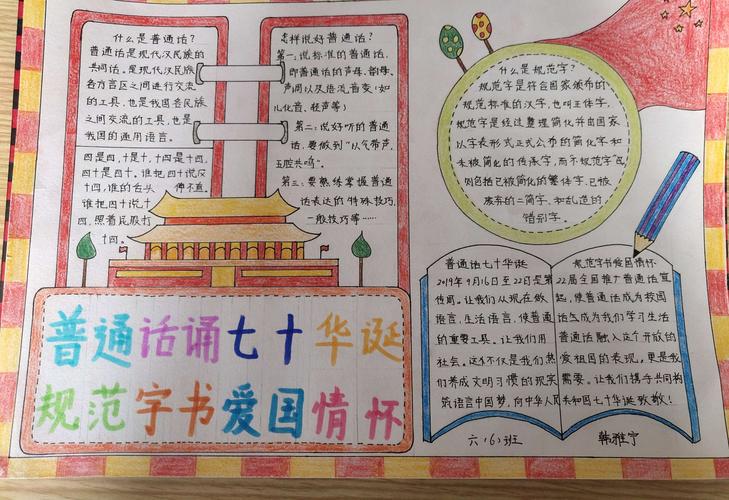 什么是普通话?
普通话是现代汉民族的
共同话。是现代汉民族
各方言区之间进行交流
的工具,也是我国各民族
之间交流的工具,也是
我国的通用语言。
四是四,十是十,十四是十四,
四十是四十。谁把四十说成
十四,谁的舌头 伸不直
谁把四十说十
四,照着屁股打
十四。
怎样说好普通话?
第一:说标准的普通话,
即普通话的声母、韵母、
声调以及语流音变(如
儿化音、轻声等)
第二:说好听的普通
话,要做到“以气带声,
五腔共鸣”。
第三:要熟练掌握普通
话表达的特殊技巧,
一般技巧等……
什么是规范字?
规范字是符合国家颁布的
规范标准的汉字,也叫正体字。
规范字是经过整理简化并由国家
以字表形式正式公布的简化字和
未被简化的传承字,而不规范字
则包括已被简化的繁体字,已被
废弃的二简字,和乱造的
错别字。
普通话七十华诞
2019年9月16日至22日是第
传周。让我们从现在做
语言,生活语言,使普通
的重要工具。让我们用
社会。这不仅是我们热
们养成文明习惯的现实
筑语言中国梦,向中华人民
规范字书爱国情怀
22届全国推广普通话宣
起,使普通话成为校园
话成为我们学习生活
普通话融入这个开放的
爱祖国的表现,更是我
需要。让我们携手共同构
共和国七十华诞致敬!
六(6)班 韩雅宁
普通话诵七十华诞
规范字书爱国情怀